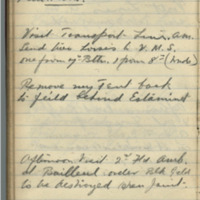 Visit Transport Lines, A.M.
Send two Horses to V.M.S.
one from "A" Batt. 1 from
Remove my Tent back
to field behind Estaminet
Afternoon Visit 2nd Fld Amb.
at Bailleul order Blk Geld
to be destroyed Open Joint.